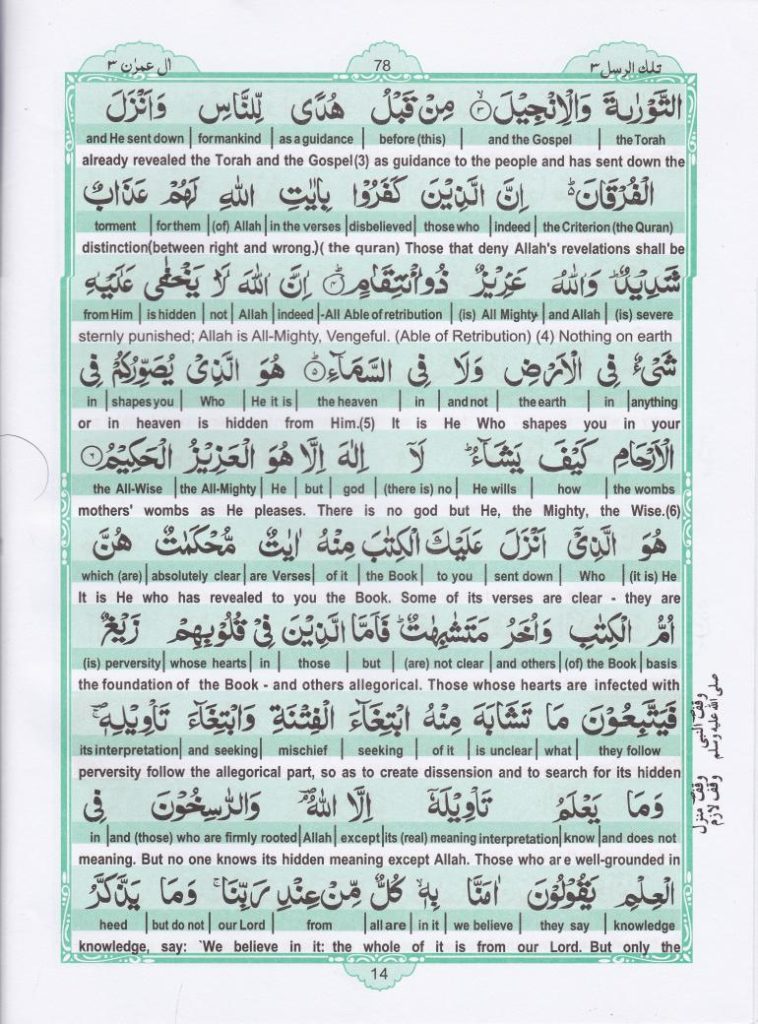 ال عمرٰن ٣
78
تلك الرسل ٣
التَّوْرٰىةَ وَالْاِنْجِيْلَ ۙ ٣ مِنْ قَبْلُ هُدًى لِّلنَّاسِ وَاَنْزَلَ
and He sent down | for mankind | as a guidance | before (this) | and the Gospel | the Torah
already revealed the Torah and the Gospel(3) as guidance to the people and has sent down the
الْفُرْقَانَ ۬ؕ اِنَّ الَّذِيْنَ كَفَرُوْا بِاٰيٰتِ اللّٰهِ لَهُمْ عَذَابٌ
torment | for them | (of) Allah | in the verses | disbelieved | those who | indeed | the Criterion (the Quran)
distinction(between right and wrong.)( the quran) Those that deny Allah's revelations shall be
شَدِيْدٌ ؕ وَاللّٰهُ عَزِيْزٌ ذُو انْتِقَامٍ ؕ ٤ اِنَّ اللّٰهَ لَا يَخْفٰى عَلَيْهِ
from Him | is hidden | not | Allah | indeed | -All Able of retribution | (is) All Mighty | and Allah | (is) severe
sternly punished; Allah is All-Mighty, Vengeful. (Able of Retribution) (4) Nothing on earth
شَىْءٌ فِى الْاَرْضِ وَلَا فِى السَّمَآءِ ؕ ٥ هُوَ الَّذِىْ يُصَوِّرُكُمْ فِى
in | shapes you | Who | He it is | the heaven | in | and not | the earth | in | anything
or in heaven is hidden from Him.(5) It is He Who shapes you in your
الْاَرْحَامِ كَيْفَ يَشَآءُ ؕ لَاۤ اِلٰهَ اِلَّا هُوَ الْعَزِيْزُ الْحَكِيْمُ ٦
the All-Wise | the All-Mighty | He | but | god | (there is) no | He wills | how | the wombs
mothers' wombs as He pleases. There is no god but He, the Mighty, the Wise.(6)
هُوَ الَّذِىْۤ اَنْزَلَ عَلَيْكَ الْكِتٰبَ مِنْهُ اٰيٰتٌ مُّحْكَمٰتٌ هُنَّ
which (are) | absolutely clear | are Verses | of it | the Book | to you | sent down | Who | (it is) He
It is He who has revealed to you the Book. Some of its verses are clear - they are
اُمُّ الْكِتٰبِ وَاُخَرُ مُتَشٰبِهٰتٌ ؕ فَاَمَّا الَّذِيْنَ فِىْ قُلُوْبِهِمْ زَيْغٌ
(is) perversity | whose hearts | in | those | but | (are) not clear | and others | (of) the Book | basis
the foundation of the Book - and others allegorical. Those whose hearts are infected with
فَيَتَّبِعُوْنَ مَا تَشَابَهَ مِنْهُ ابْتِغَآءَ الْفِتْنَةِ وَابْتِغَآءَ تَاْوِيْلِهٖ ۚ
its interpretation | and seeking | mischief | seeking | of it | is unclear | what | they follow
perversity follow the allegorical part, so as to create dissension and to search for its hidden
وَمَا يَعْلَمُ تَاْوِيْلَهٗۤ اِلَّا اللّٰهُ ۘ وَالرّٰسِخُوْنَ فِى
in | and (those) who are firmly rooted | Allah | except | its (real) meaning interpretation | know | and does not
meaning. But no one knows its hidden meaning except Allah. Those who are well-grounded in
الْعِلْمِ يَقُوْلُوْنَ اٰمَنَّا بِهٖ ۙ كُلٌّ مِّنْ عِنْدِ رَبِّنَا ۚ وَمَا يَذَّكَّرُ
heed | but do not | our Lord | from | all are | in it | we believe | they say | knowledge
knowledge, say: `We believe in it: the whole of it is from our Lord. But only the
وقف النبى صلى الله عليه وسلم
وقف لازم
وقف منزل
14